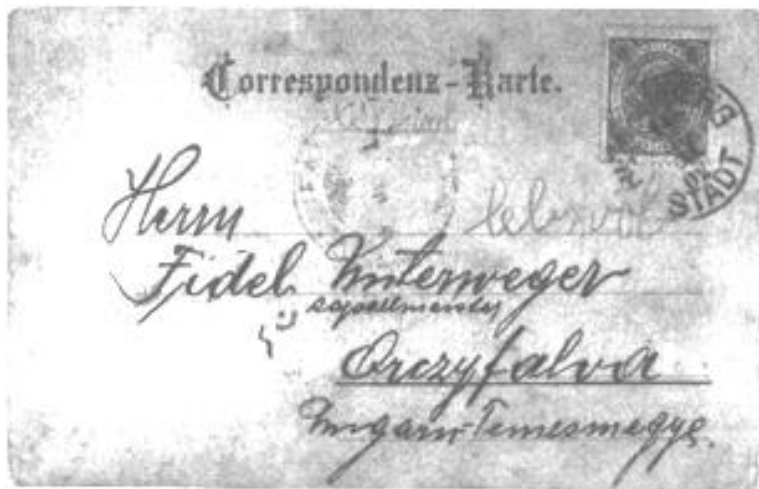 Correspondenz-Karte.
STADT
Herrn
Fidel Unterweger
Kapellmeister
Orczyfalva
Ungarn-Temesmegye.